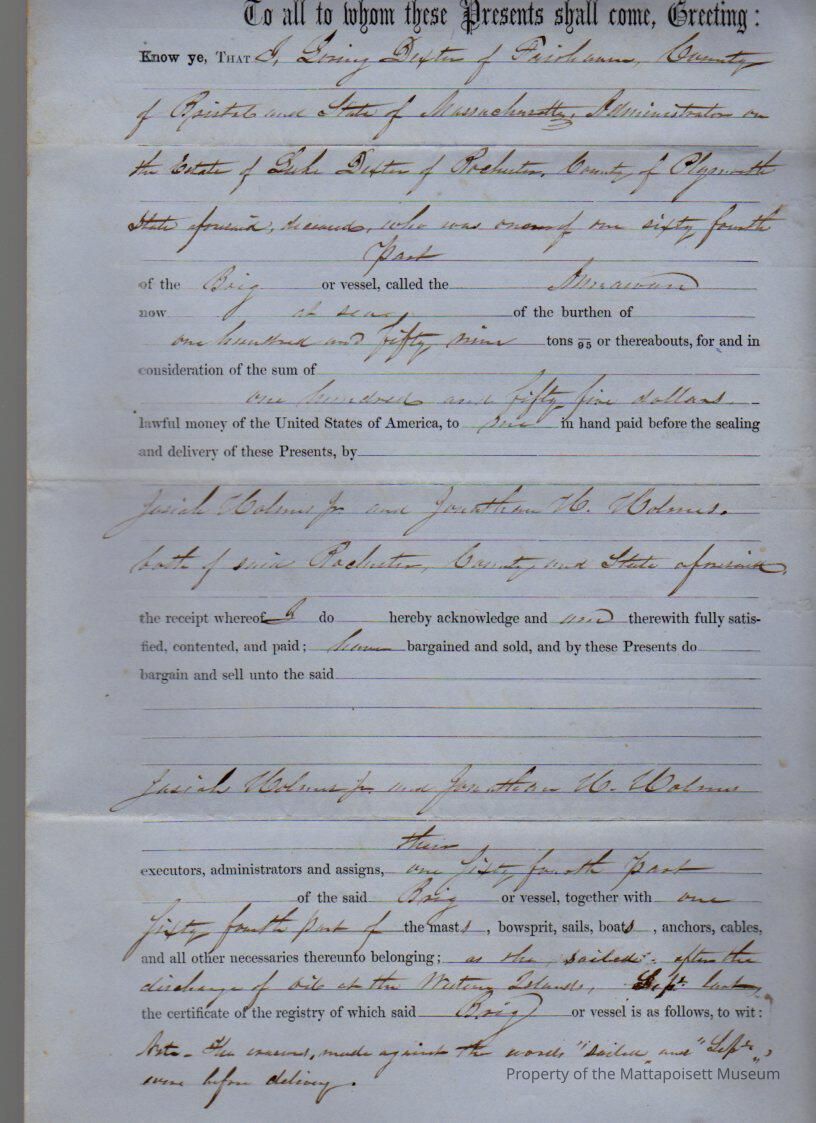 To all to whom these Presents shall come, Greeting:
Know ye, That I, Loring Dexter of Fairhaven, County
of Bristol and State of Massachusetts, Administrator on
the Estate of Luke Dexter of Rochester, County of Plymouth
State aforesaid, deceased, who was owner of one sixty fourth
part
of the Brig or vessel, called the Annawan
now at sea, of the burthen of
one hundred and fifty nine tons 95 or thereabouts, for and in
consideration of the sum of
one hundred and fifty five dollars
lawful money of the United States of America, to me in hand paid before the sealing
and delivery of these Presents, by
Josiah Holmes Jr. and Jonathan H. Holmes.
both of said Rochester, County and State aforesaid
the receipt whereof I do hereby acknowledge and am therewith fully satis-
fied, contented, and paid; have bargained and sold, and by these Presents do
bargain and sell unto the said
Josiah Holmes Jr. and Jonathan H. Holmes
their
executors, administrators and assigns, one sixty fourth part
of the said Brig or vessel, together with one
sixty fourth part of the masts, bowsprit, sails, boats, anchors, cables,
and all other necessaries thereunto belonging; as she sailed after the
discharge of oil at the Western Islands, Sept. last,
the certificate of the registry of which said Brig or vessel is as follows, to wit:
Note - The erasures, made against the words "sailed" and "Sept."
were before delivery.
Property of the Mattapoisett Museum